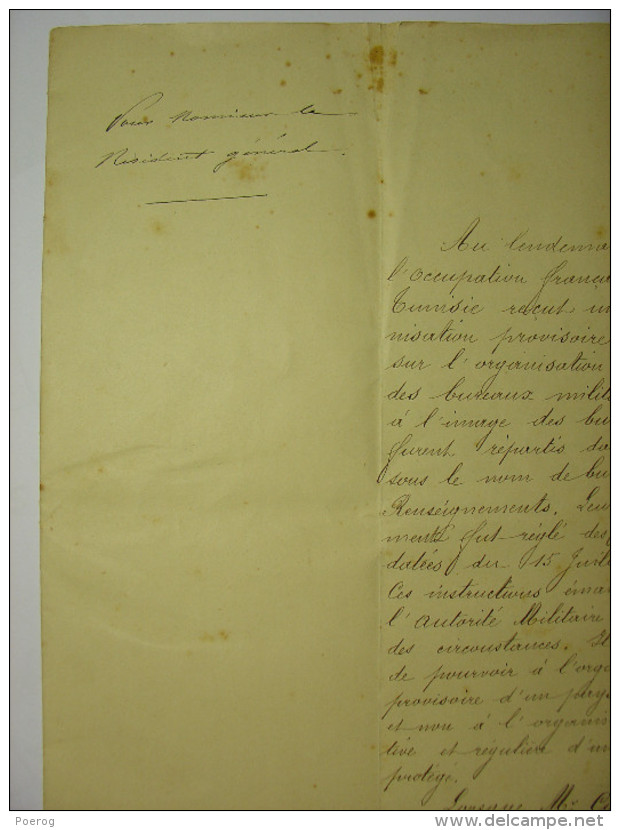 Pour Monsieur le
Résident général.
Au lendema
l'Occupation frança
Tunisie reçut un
nisation provisoire
sur l'organisation
des bureaux milit
à l'image des bu
furent répartis da
sous le nom de bu
Renseignements. Leu
ment fut réglé des
datées du 15 Juil
Ces instructions éma
l'autorité Militaire
des circonstances. Il
de pourvoir à l'orga
provisoire d'un pays
et non à l'organis
tive et régulière d'un
protégé.
Lorsque Mr C
Poerog
delcampe.net